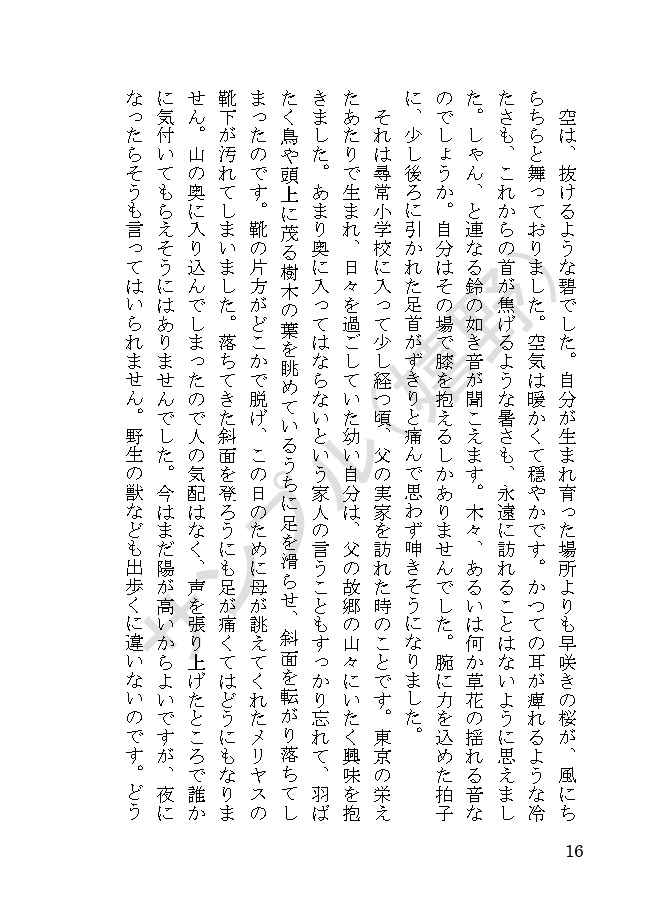 空は、抜けるような碧でした。自分が生まれ育った場所よりも早咲きの桜が、風にち
らちらと舞っておりました。空気は暖かくて穏やかです。かつての耳が痺れるような冷
たさも、これからの首が焦げるような暑さも、永遠に訪れることはないように思えまし
た。しゃん、と連なる鈴の如き音が聞こえます。木々、あるいは何か草花の揺れる音な
のでしょうか。自分はその場で膝を抱えるしかありませんでした。腕に力を込めた拍子
に、少し後ろに引かれた足首がずきりと痛んで思わず呻きそうになりました。
　それは尋常小学校に入って少し経つ頃、父の実家を訪れた時のことです。東京の栄え
たあたりで生まれ、日々を過ごしていた幼い自分は、父の故郷の山々にいたく興味を抱
きました。あまり奥に入ってはならないという家人の言うこともすっかり忘れて、羽ば
たく鳥や頭上に茂る樹木の葉を眺めているうちに足を滑らせ、斜面を転がり落ちてし
まったのです。靴の片方がどこかで脱げ、この日のために母が誂えてくれたメリヤスの
靴下が汚れてしまいました。落ちてきた斜面を登ろうにも足が痛くてはどうにもなりま
せん。山の奥に入り込んでしまったので人の気配はなく、声を張り上げたところで誰か
に気付いてもらえそうにはありませんでした。今はまだ陽が高いからよいですが、夜に
なったらそうも言ってはいられません。野生の獣なども出歩くに違いないのです。どう
16
サンプル（嬉野）